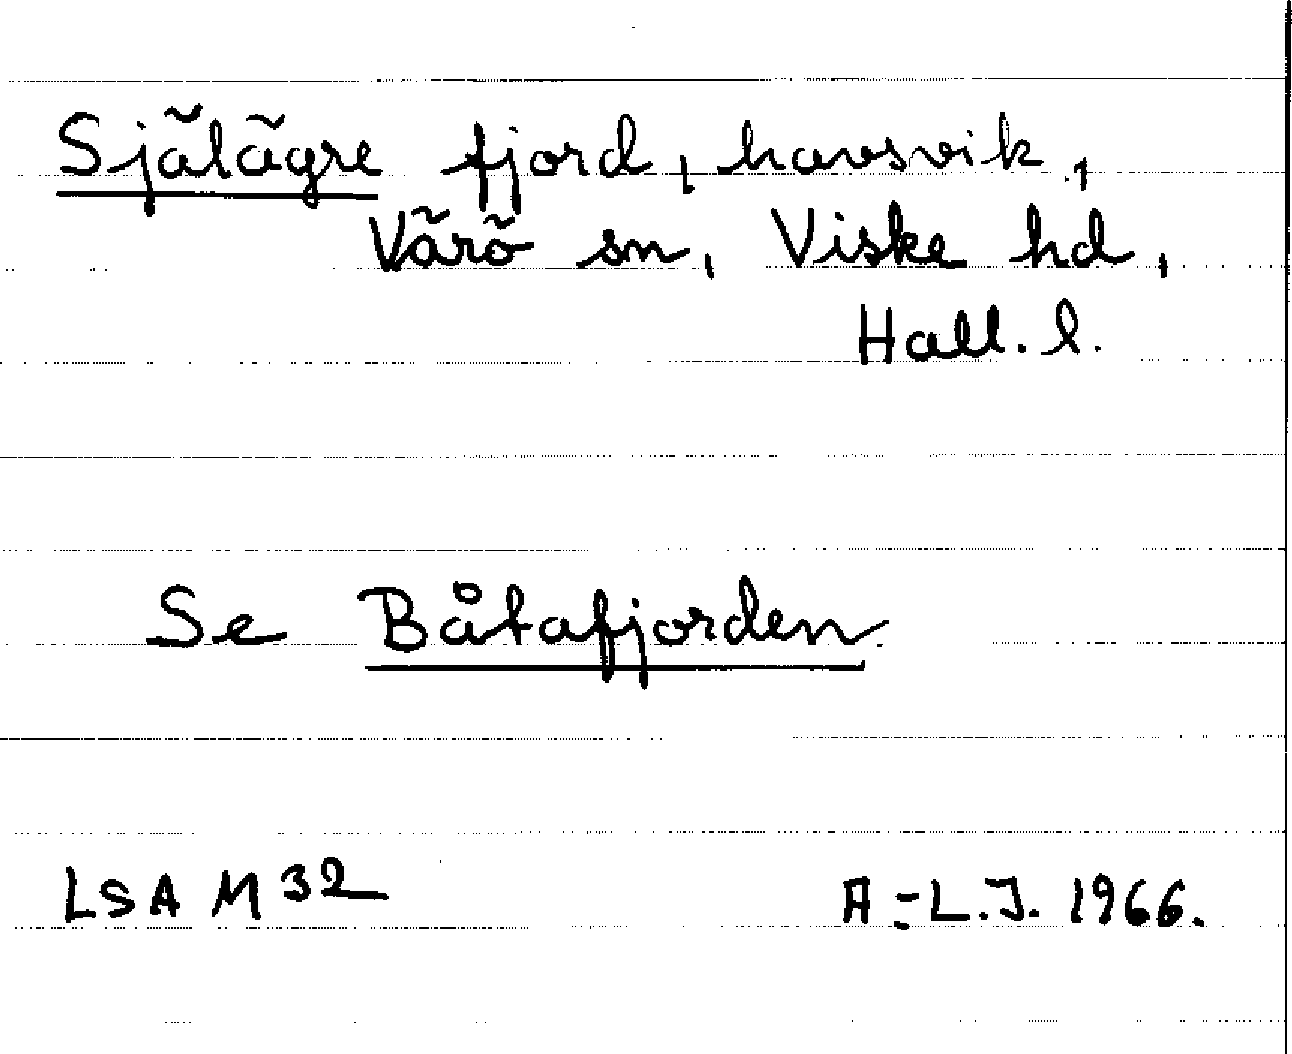 Själägre fjord, havsvik,
Värö sn, Viske hd,
Hall. l.
Se Båtafjorden.
LSA M 32
A.-L.J. 1966.